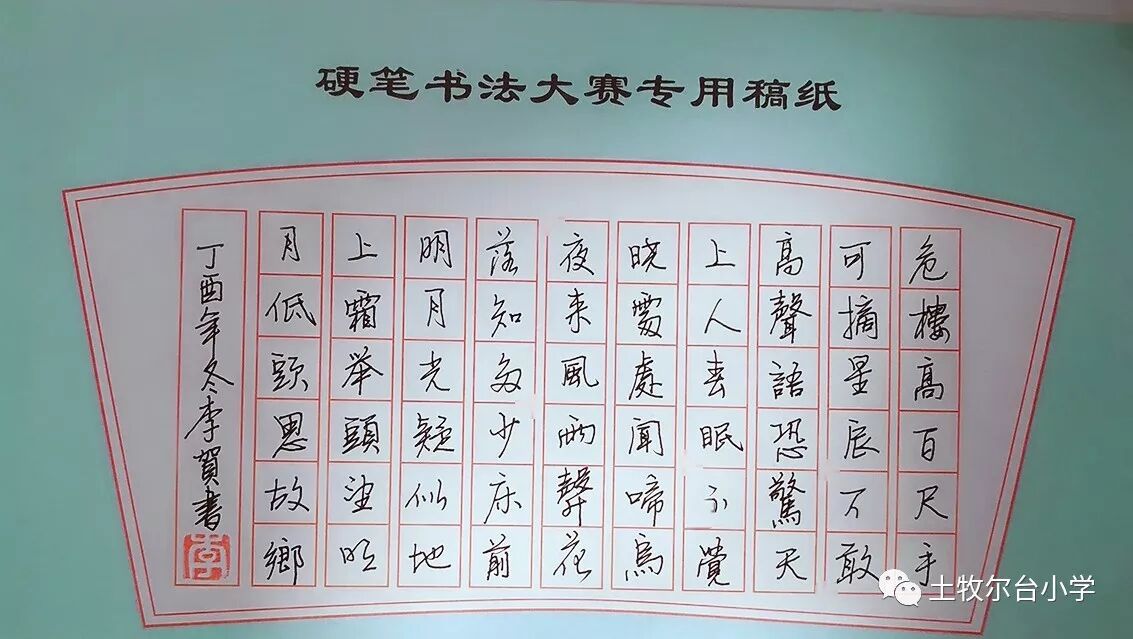 硬笔书法大赛专用稿纸
危樓高百尺手
可摘星辰不敢
高聲語恐驚天
上人春眠不覺
晓處處闻啼鳥
夜来風雨聲花
落知多少床前
明月光疑似地
上霜举頭望明
月低頭思故鄉
丁酉年冬李賀書
李
土牧尔台小学